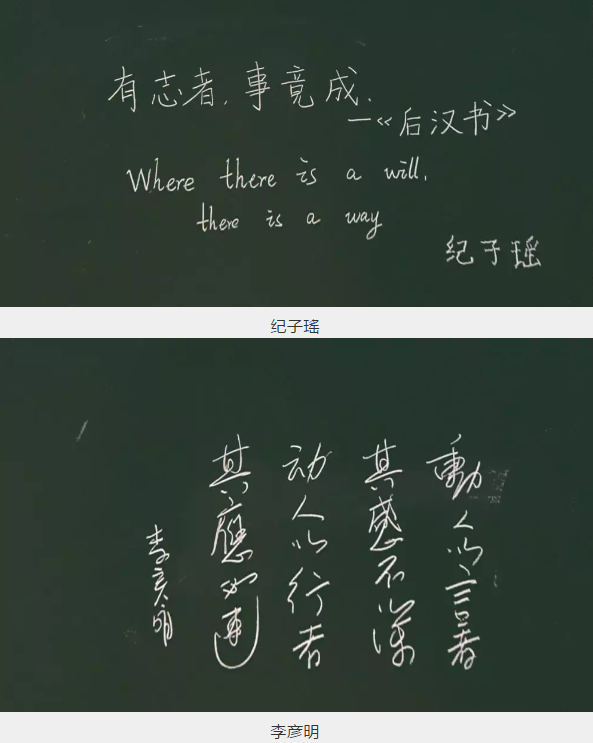 有志者,事竟成.
—《后汉书》
Where there is a will,
there is a way
纪子瑶
纪子瑤
動人以言者
其感不深
动人以行者
其應必速
李彦明
李彦明